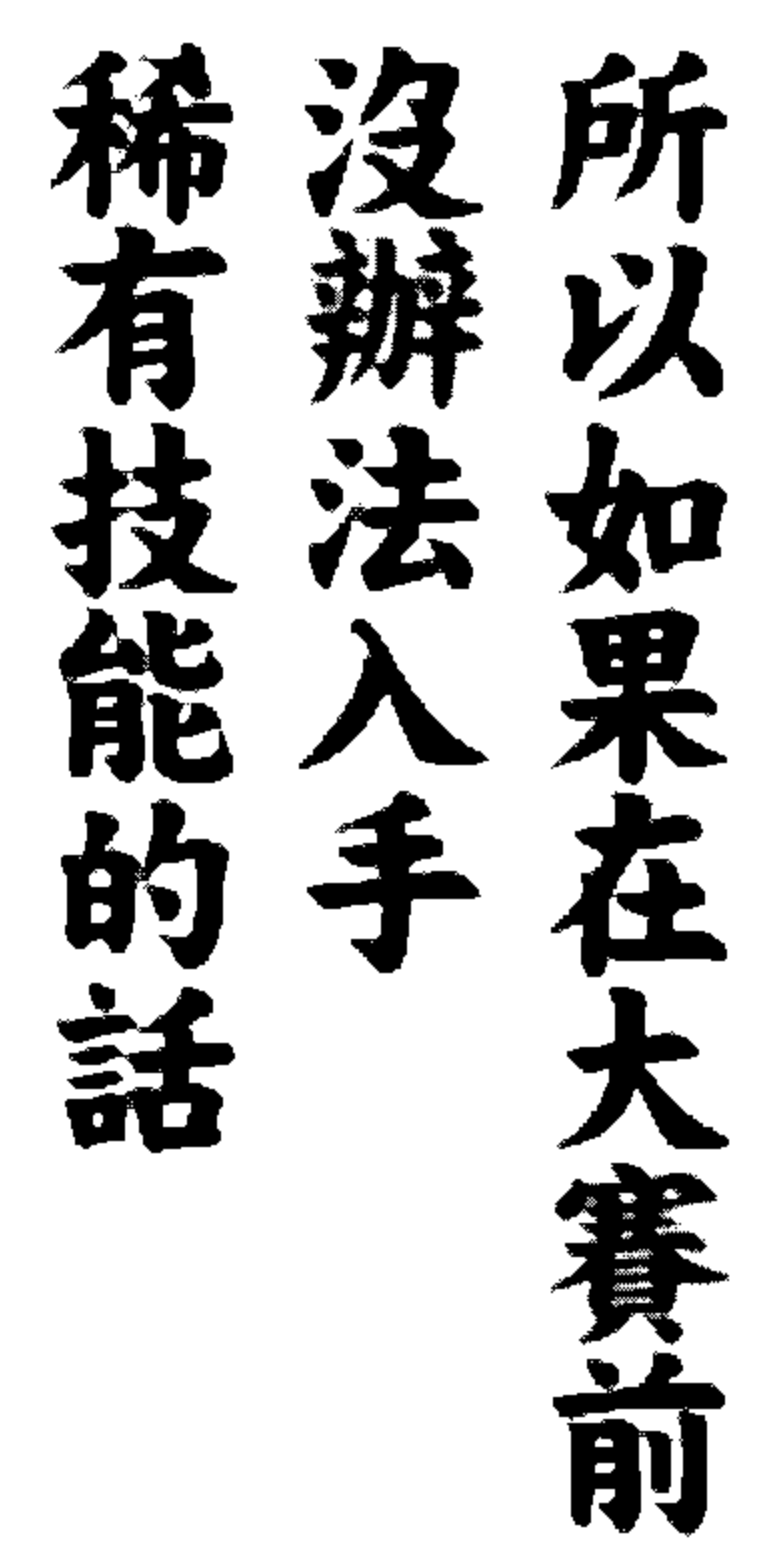 所以如果在大賽前
沒辦法入手
稀有技能的話